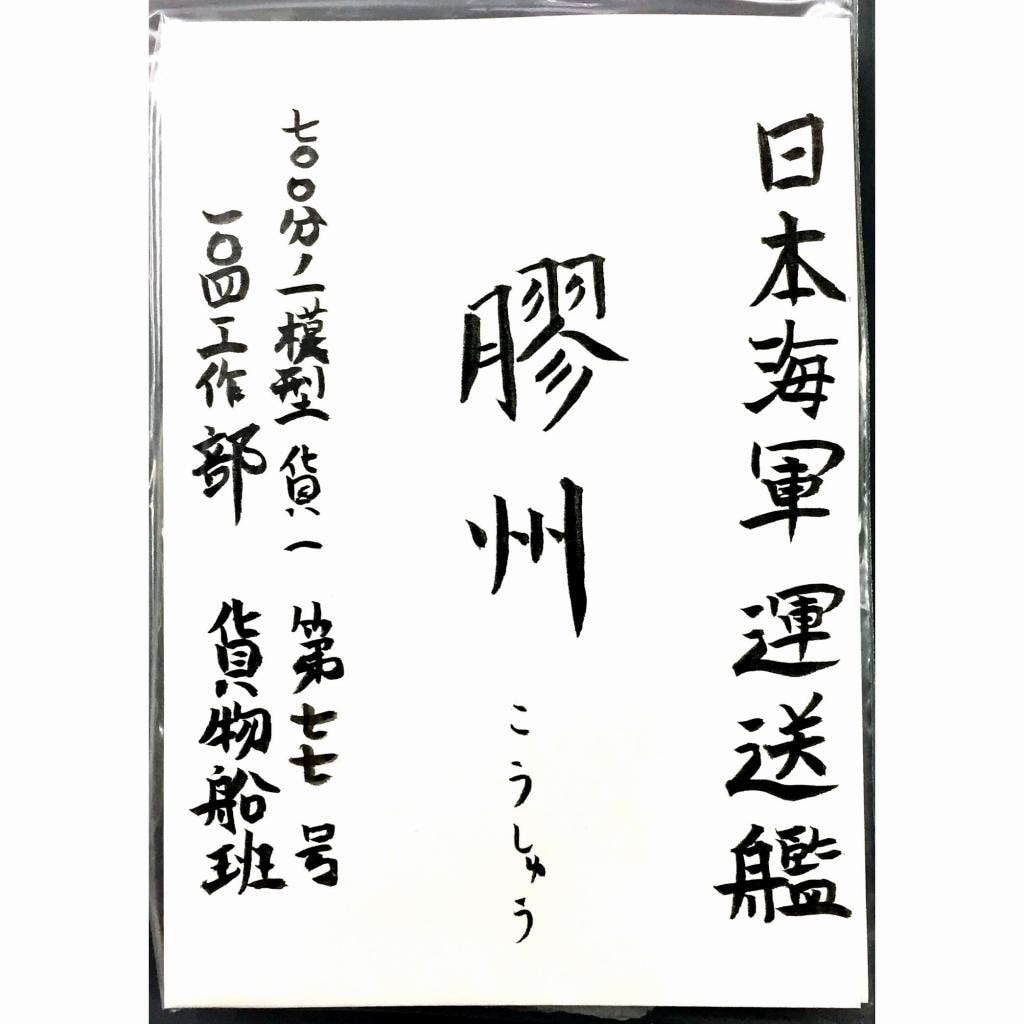 日本海軍 運送艦
膠州 こうしゅう
七〇〇分ノ一模型 貨一 第七七号
一〇四工作部 貨物船班